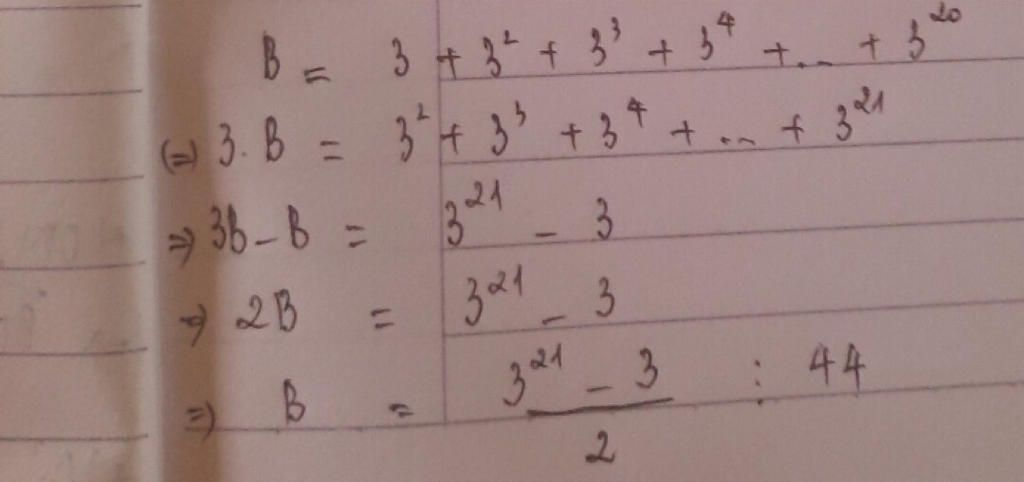 B = 3 + 3² + 3³ + 3⁴ + ... + 3²⁰
(=) 3.B = 3² + 3³ + 3⁴ + ... + 3²¹
=) 3B - B = 3²¹ - 3
=) 2B = 3²¹ - 3
=) B = (3²¹ - 3)/2 : 44